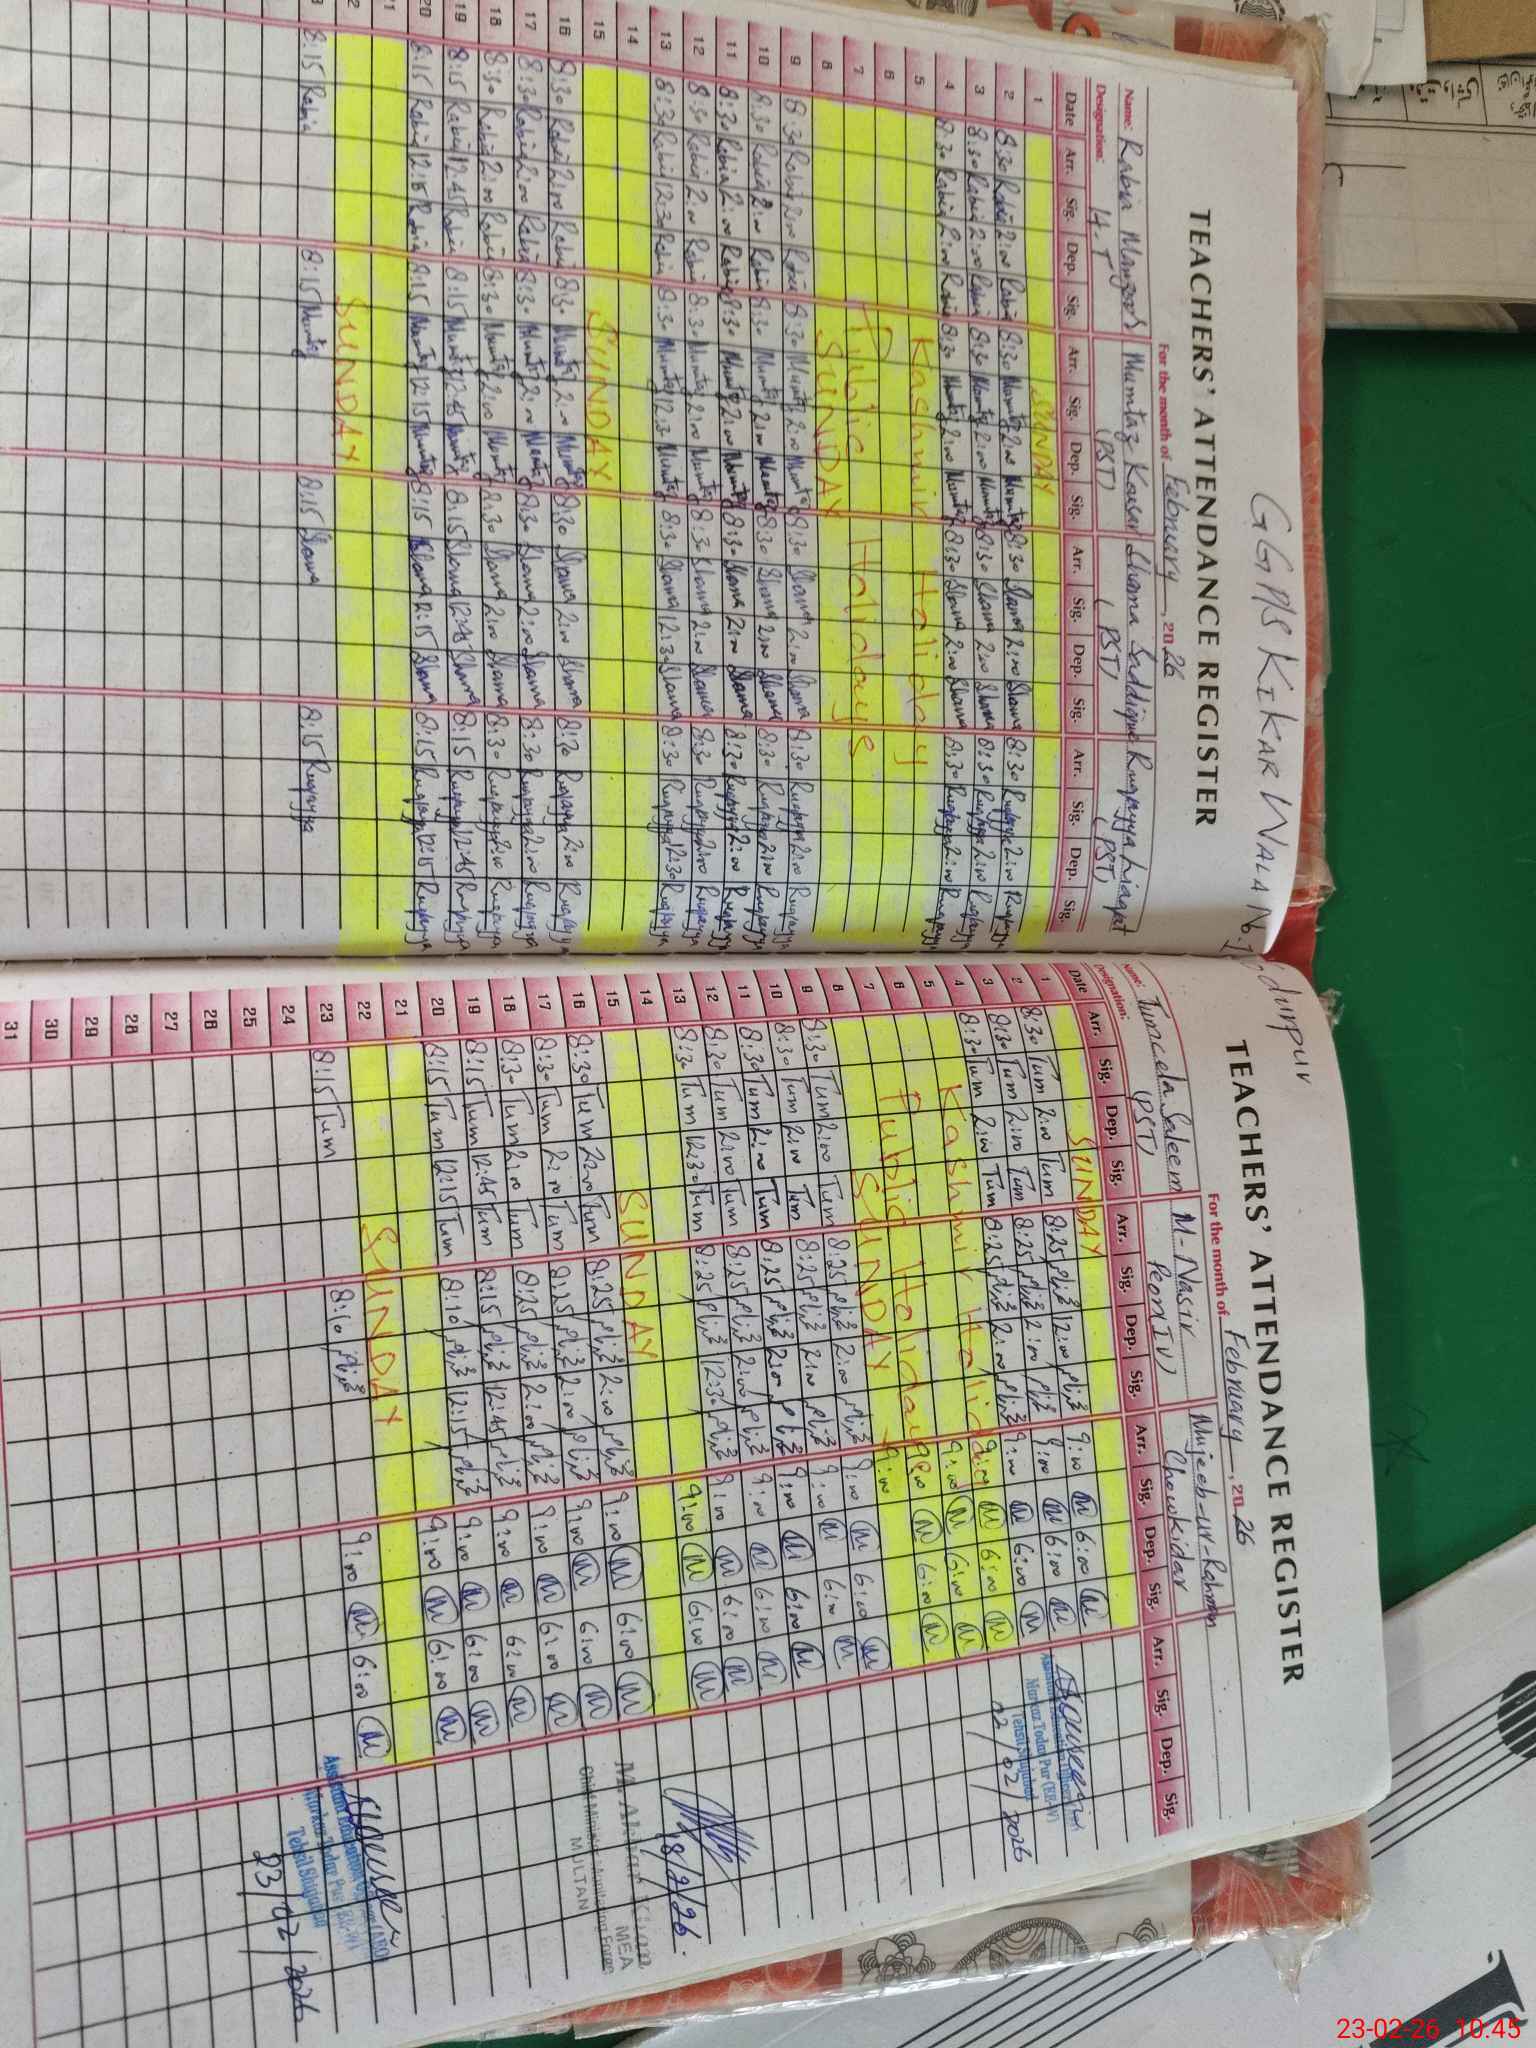 GGPS KIKAR WALA No.1
TEACHERS' ATTENDANCE REGISTER
For the month of February, 2026
Name: Rabia Manzoor Mumtaz Kousar Shama Saddique Ruqayya Liaqat
Designation: H.T (PST) (PST) (PST)
Date Arr. Sig. Dep. Sig. Arr. Sig. Dep. Sig. Arr. Sig. Dep. Sig. Arr. Sig. Dep. Sig.
1 SUNDAY
2 8:30 Rabia 2:00 Rabia 8:30 Mumtaz 2:00 Mumtaz 8:30 Shama 2:00 Shama 8:30 Ruqayya 2:00 Ruqayya
3 8:30 Rabia 2:00 Rabia 8:30 Mumtaz 2:00 Mumtaz 8:30 Shama 2:00 Shama 8:30 Ruqayya 2:00 Ruqayya
4 8:30 Rabia 2:00 Rabia 8:30 Mumtaz 2:00 Mumtaz 8:30 Shama 2:00 Shama 8:30 Ruqayya 2:00 Ruqayya
5 Kashmir Holiday
6
7 Public Holidays
8 SUNDAY
9 8:30 Rabia 2:00 Rabia 8:30 Mumtaz 2:00 Mumtaz 8:30 Shama 2:00 Shama 8:30 Ruqayya 2:00 Ruqayya
10 8:30 Rabia 2:00 Rabia 8:30 Mumtaz 2:00 Mumtaz 8:30 Shama 2:00 Shama 8:30 Ruqayya 2:00 Ruqayya
11 8:30 Rabia 2:00 Rabia 8:30 Mumtaz 2:00 Mumtaz 8:30 Shama 2:00 Shama 8:30 Ruqayya 2:00 Ruqayya
12 8:30 Rabia 2:00 Rabia 8:30 Mumtaz 2:00 Mumtaz 8:30 Shama 2:00 Shama 8:30 Ruqayya 2:00 Ruqayya
13 8:30 Rabia 12:30 Rabia 8:30 Mumtaz 12:30 Mumtaz 8:30 Shama 12:30 Shama 8:30 Ruqayya 12:30 Ruqayya
14
15 SUNDAY
16 8:30 Rabia 2:00 Rabia 8:30 Mumtaz 2:00 Mumtaz 8:30 Shama 2:00 Shama 8:30 Ruqayya 2:00 Ruqayya
17 8:30 Rabia 2:00 Rabia 8:30 Mumtaz 2:00 Mumtaz 8:30 Shama 2:00 Shama 8:30 Ruqayya 2:00 Ruqayya
18 8:30 Rabia 2:00 Rabia 8:30 Mumtaz 2:00 Mumtaz 8:30 Shama 2:00 Shama 8:30 Ruqayya 2:00 Ruqayya
19 8:15 Rabia 12:45 Rabia 8:15 Mumtaz 12:45 Mumtaz 8:15 Shama 12:45 Shama 8:15 Ruqayya 12:45 Ruqayya
20 8:15 Rabia 12:15 Rabia 8:15 Mumtaz 12:15 Mumtaz 8:15 Shama 12:15 Shama 8:15 Ruqayya 12:15 Ruqayya
21
SUNDAY
8:15 Rabia 8:15 Mumtaz 8:15 Shama 8:15 Ruqayya
TEACHERS' ATTENDANCE REGISTER
For the month of February, 2026
Name: Tumeela Saleem M-Nasir Mujeeb-ur-Rahman
Designation: (PST) Peon IV) Chowkidar
Date Arr. Sig. Dep. Sig. Arr. Sig. Dep. Sig. Arr. Sig. Dep. Sig. Arr. Sig. Dep. Sig.
1 SUNDAY
2 8:30 Tum 2:00 Tum 8:25 2:00 9:00 M 6:00 M
3 8:30 Tum 2:00 Tum 8:25 2:00 9:00 M 6:00 M
4 8:30 Tum 2:00 Tum 8:25 2:00 9:00 M 6:00 M
5 Kashmir Holiday 9:00 M 6:00 M
6 9:00 M 6:00 M
7 Public Holidays 9:00 M 6:00 M
8 SUNDAY 9:00
9 8:30 Tum 2:00 Tum 8:25 2:00 9:00 M 6:00 M
10 8:30 Tum 2:00 Tum 8:25 2:00 9:00 M 6:00 M
11 8:30 Tum 2:00 Tum 8:25 2:00 9:00 M 6:00 M
12 8:30 Tum 2:00 Tum 8:25 2:00 9:00 M 6:00 M
13 8:30 Tum 12:30 Tum 8:25 12:30 9:00 M 6:00 M
14 9:00 M 6:00 M
15 SUNDAY
16 8:30 Tum 2:00 Tum 8:25 2:00 9:00 M 6:00 M
17 8:30 Tum 2:00 Tum 8:25 2:00 9:00 M 6:00 M
18 8:30 Tum 2:00 Tum 8:25 2:00 9:00 M 6:00 M
19 8:15 Tum 12:45 Tum 8:15 12:45 9:00 M 6:00 M
20 8:15 Tum 12:15 Tum 8:10 12:15 9:00 M 6:00 M
21 9:00 M 6:00 M
22 SUNDAY
23 8:15 Tum 8:10 9:00 M 6:00 M
24
25
26
27
28
29
30
31
Markaz Todar Pur (EE-W)
Tehsil Shujabad
02/02/2026
18/2/26
MEA
Chief Minister Monitoring Force
MULTAN
Assistant Education Officer (AEO)
Markaz Todar Pur
Tehsil Shujabad
23/02/2026
23-02-26 10:45